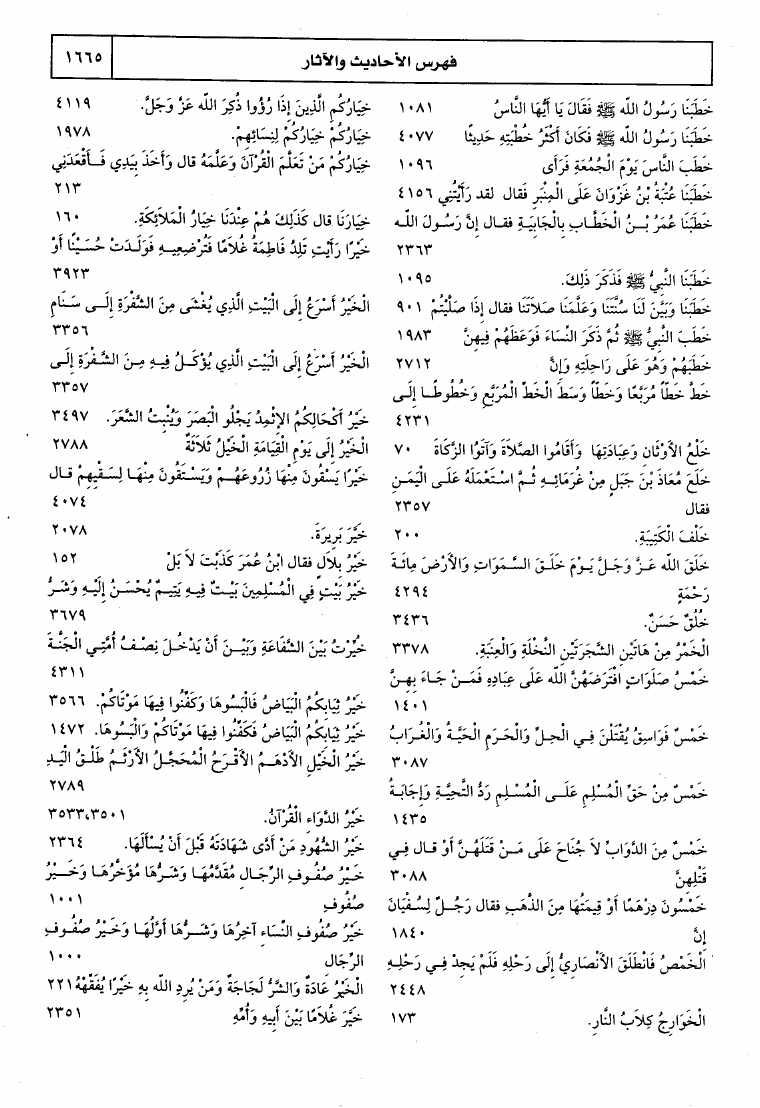 فهرس الأحاديث والآثار
١٦٦٥
خَطَبَنَا رَسُولُ الله ﷺ فَقَالَ يَا أَيُّهَا النَّاسُ ١٠٨١
خَطَبَنَا رَسُولُ الله ﷺ فَكَانَ أَكْثَرُ خُطْبَتِهِ حَدِيثًا ٤٠٧٧
خَطَبَ النَّاسَ يَوْمَ الْجُمُعَةِ فَرَأَى ١٠٩٦
خَطَبَنَا عُتْبَةُ بْنُ غَزْوَانَ عَلَى الْمِنْبَرِ فَقَال لقد رَأَيْتُنِي ٤١٥٦
خَطَبَنَا عُمَرُ بْـنُ الْخَطَّـابِ بِالْجَابِيَـةِ فقـال إِنَّ رَسُـولَ اللـه
٢٣٦٣
خَطَبَنَا النَّبِيُّ ﷺ فَذَكَرَ ذَلِكَ. ١٠٩٥
خَطَبَنَا وَبَيَّنَ لَنَا سُنَّتَنَا وَعَلَّمَنَا صَلاَتَنَا فقال إِذَا صَلَّيْتُمْ ٩٠١
خَطَبَ النَّبِيُّ ﷺ ثُمَّ ذَكَرَ النِّسَاءَ فَوَعَظَهُمْ فِيهِنَّ ١٩٨٣
خَطَبَهُمْ وَهُوَ عَلَى رَاحِلَتِهِ وَإِنَّ ٢٧١٢
خَطَّ خَطًّا مُرَبَّعًا وَخَطًّا وَسَطَ الْخَطِّ الْمُرَبَّعِ وَخُطُوطًـا إِلَـى
٤٢٣١
خَلْعُ الأَوْثَانِ وَعِبَادَتِهَا وَأَقَامُوا الصَّلاَةَ وَآتَوُا الزَّكَاةَ ٧٠
خَلَعَ مُعَاذَ بْنَ جَبَلٍ مِنْ غُرَمَائِـهِ ثُـمَّ اسْتَعْمَلَهُ عَلَـى الْيَمَـنِ
فقال ٢٣٥٧
خَلْفَ الْكَتِيبَةِ. ٢٠٠
خَلَقَ الله عَـزَّ وَجَـلَّ يَـوْمَ خَلَـقَ السَّمَوَاتِ وَالأَرْضَ مِائَـةَ
رَحْمَةٍ ٤٢٩٤
خُلُقٌ حَسَنٌ. ٣٤٣٦
الْخَمْرُ مِنْ هَاتَيْنِ الشَّجَرَتَيْنِ النَّخْلَةِ وَالْعِنَبَةِ. ٣٣٧٨
خَمْسُ صَلَوَاتٍ افْتَرَضَهُنَّ الله عَلَى عِبَادِهِ فَمَـنْ جَـاءَ بِهِـنَّ
١٤٠١
خَمْسٌ فَوَاسِقُ يُقْتَلْنَ فِـي الْحِـلِّ وَالْحَرَمِ الْحَيَّـةُ وَالْغُرَابُ
٣٠٨٧
خَمْسٌ مِنْ حَقِّ الْمُسْلِمِ عَلَـى الْمُسْلِمِ رَدُّ التَّحِيَّـةِ وَإِجَابَـةُ
١٤٣٥
خَمْسٌ مِنَ الدَّوَابِّ لاَ جُنَاحَ عَلَى مَـنْ قَتَلَهُـنَّ أَوْ قـال فِـي
قَتْلِهِنَّ ٣٠٨٨
خَمْسُونَ دِرْهَمًا أَوْ قِيمَتُهَا مِنَ الذَّهَبِ فقال رَجُـلٌ لِسُفْيَانَ
إِنَّ ١٨٤٠
الْخَمْصُ فَانْطَلَقَ الأَنْصَارِيُّ إِلَى رَحْلِهِ فَلَمْ يَجِدْ فِـي رَحْلِـهِ
٢٤٤٨
الْخَوَارِجُ كِلاَبُ النَّارِ. ١٧٣
خِيَارُكُمِ الَّذِينَ إِذَا رُؤُوا ذُكِرَ الله عَزَّ وَجَلَّ. ٤١١٩
خِيَارُكُمْ خِيَارُكُمْ لِنِسَائِهِمْ. ١٩٧٨
خِيَارُكُمْ مَنْ تَعَلَّمَ الْقُرْآنَ وَعَلَّمَهُ قال وَأَخَذَ بِيَدِي فَـأَقْعَدَنِي
٢١٣
خِيَارَنَا قال كَذَلِكَ هُمْ عِنْدَنَا خِيَارُ الْمَلاَئِكَةِ. ١٦٠
خَيْرًا رَأَيْتِ تَلِدُ فَاطِمَةُ غُلاَمًا فَتُرْضِعِيـهِ فَوَلَـدَتْ حُسَيْنًا أَوْ
٣٩٢٣
الْخَيْرُ أَسْرَعُ إِلَى الْبَيْتِ الَّذِي يُغْشَى مِنَ الشَّفْرَةِ إِلَـى سَنَامِ
٣٣٥٦
الْخَيْرُ أَسْرَعُ إِلَى الْبَيْتِ الَّذِي يُؤْكَـلُ فِيـهِ مِـنَ الشَّـفْرَةِ إِلَى
٣٣٥٧
خَيْرُ أَكْحَالِكُمُ الإِثْمِدُ يَجْلُو الْبَصَرَ وَيُنْبِتُ الشَّعَرَ. ٣٤٩٧
الْخَيْرُ إِلَى يَوْمِ الْقِيَامَةِ الْخَيْلُ ثَلاَثَةٌ ٢٧٨٨
خَيْرًا يَسْقُونَ مِنْهَا زُرُوعَهُـمْ وَيَسْتَقُونَ مِنْهَـا لِسَـقْيِهِمْ قـال
٤٠٧٤
خَيَّرَ بَرِيرَةَ. ٢٠٧٨
خَيْرُ بِلاَلٍ فقال ابْنُ عُمَرَ كَذَبْتَ لاَ بَلْ ١٥٢
خَيْرُ بَيْتٍ فِي الْمُسْلِمِينَ بَيْـتٌ فِيـهِ يَتِيـمٌ يُحْسَـنُ إِلَيْهِ وَشَـرُّ
٣٦٧٩
خُيِّرْتُ بَيْنَ الشَّفَاعَةِ وَبَيْـنَ أَنْ يَدْخُـلَ نِصْـفُ أُمَّتِـي الْجَنَّـةَ
٤٣١١
خَيْرُ ثِيَابِكُمُ الْبَيَاضُ فَالْبَسُوهَا وَكَفِّنُوا فِيهَا مَوْتَاكُمْ. ٣٥٦٦
خَيْرُ ثِيَابِكُمُ الْبَيَاضُ فَكَفِّنُوا فِيهَا مَوْتَاكُمْ وَالْبَسُوهَا. ١٤٧٢
خَيْرُ الْخَيْلِ الأَدْهَـمُ الأَقْرَحُ الْمُحَجَّلُ الأَرْثَـمُ طَلْـقُ الْيَـدِ
٢٧٨٩
خَيْرُ الدَّوَاءِ الْقُرْآنُ. ٣٥٣٣،٣٥٠١
خَيْرُ الشُّهُودِ مَنْ أَدَّى شَهَادَتَهُ قَبْلَ أَنْ يُسْأَلَهَا. ٢٣٦٤
خَيْـرُ صُفُـوفِ الرِّجَـالِ مُقَدَّمُهَـا وَشَرُّهَـا مُؤَخَّرُهَـا وَخَـيْرُ
صُفُوفِ ١٠٠١
خَيْرُ صُفُوفِ النِّسَاءِ آخِرُهَا وَشَـرُّهَا أَوَّلُهَـا وَخَيْرُ صُفُـوفِ
الرِّجَالِ ١٠٠٠
الْخَيْرُ عَادَةٌ وَالشَّرُّ لَجَاجَةٌ وَمَنْ يُرِدِ الله بِهِ خَيْرًا يُفَقِّهْهُ ٢٢١
خَيَّرَ غُلاَمًا بَيْنَ أَبِيهِ وَأُمِّهِ ٢٣٥١